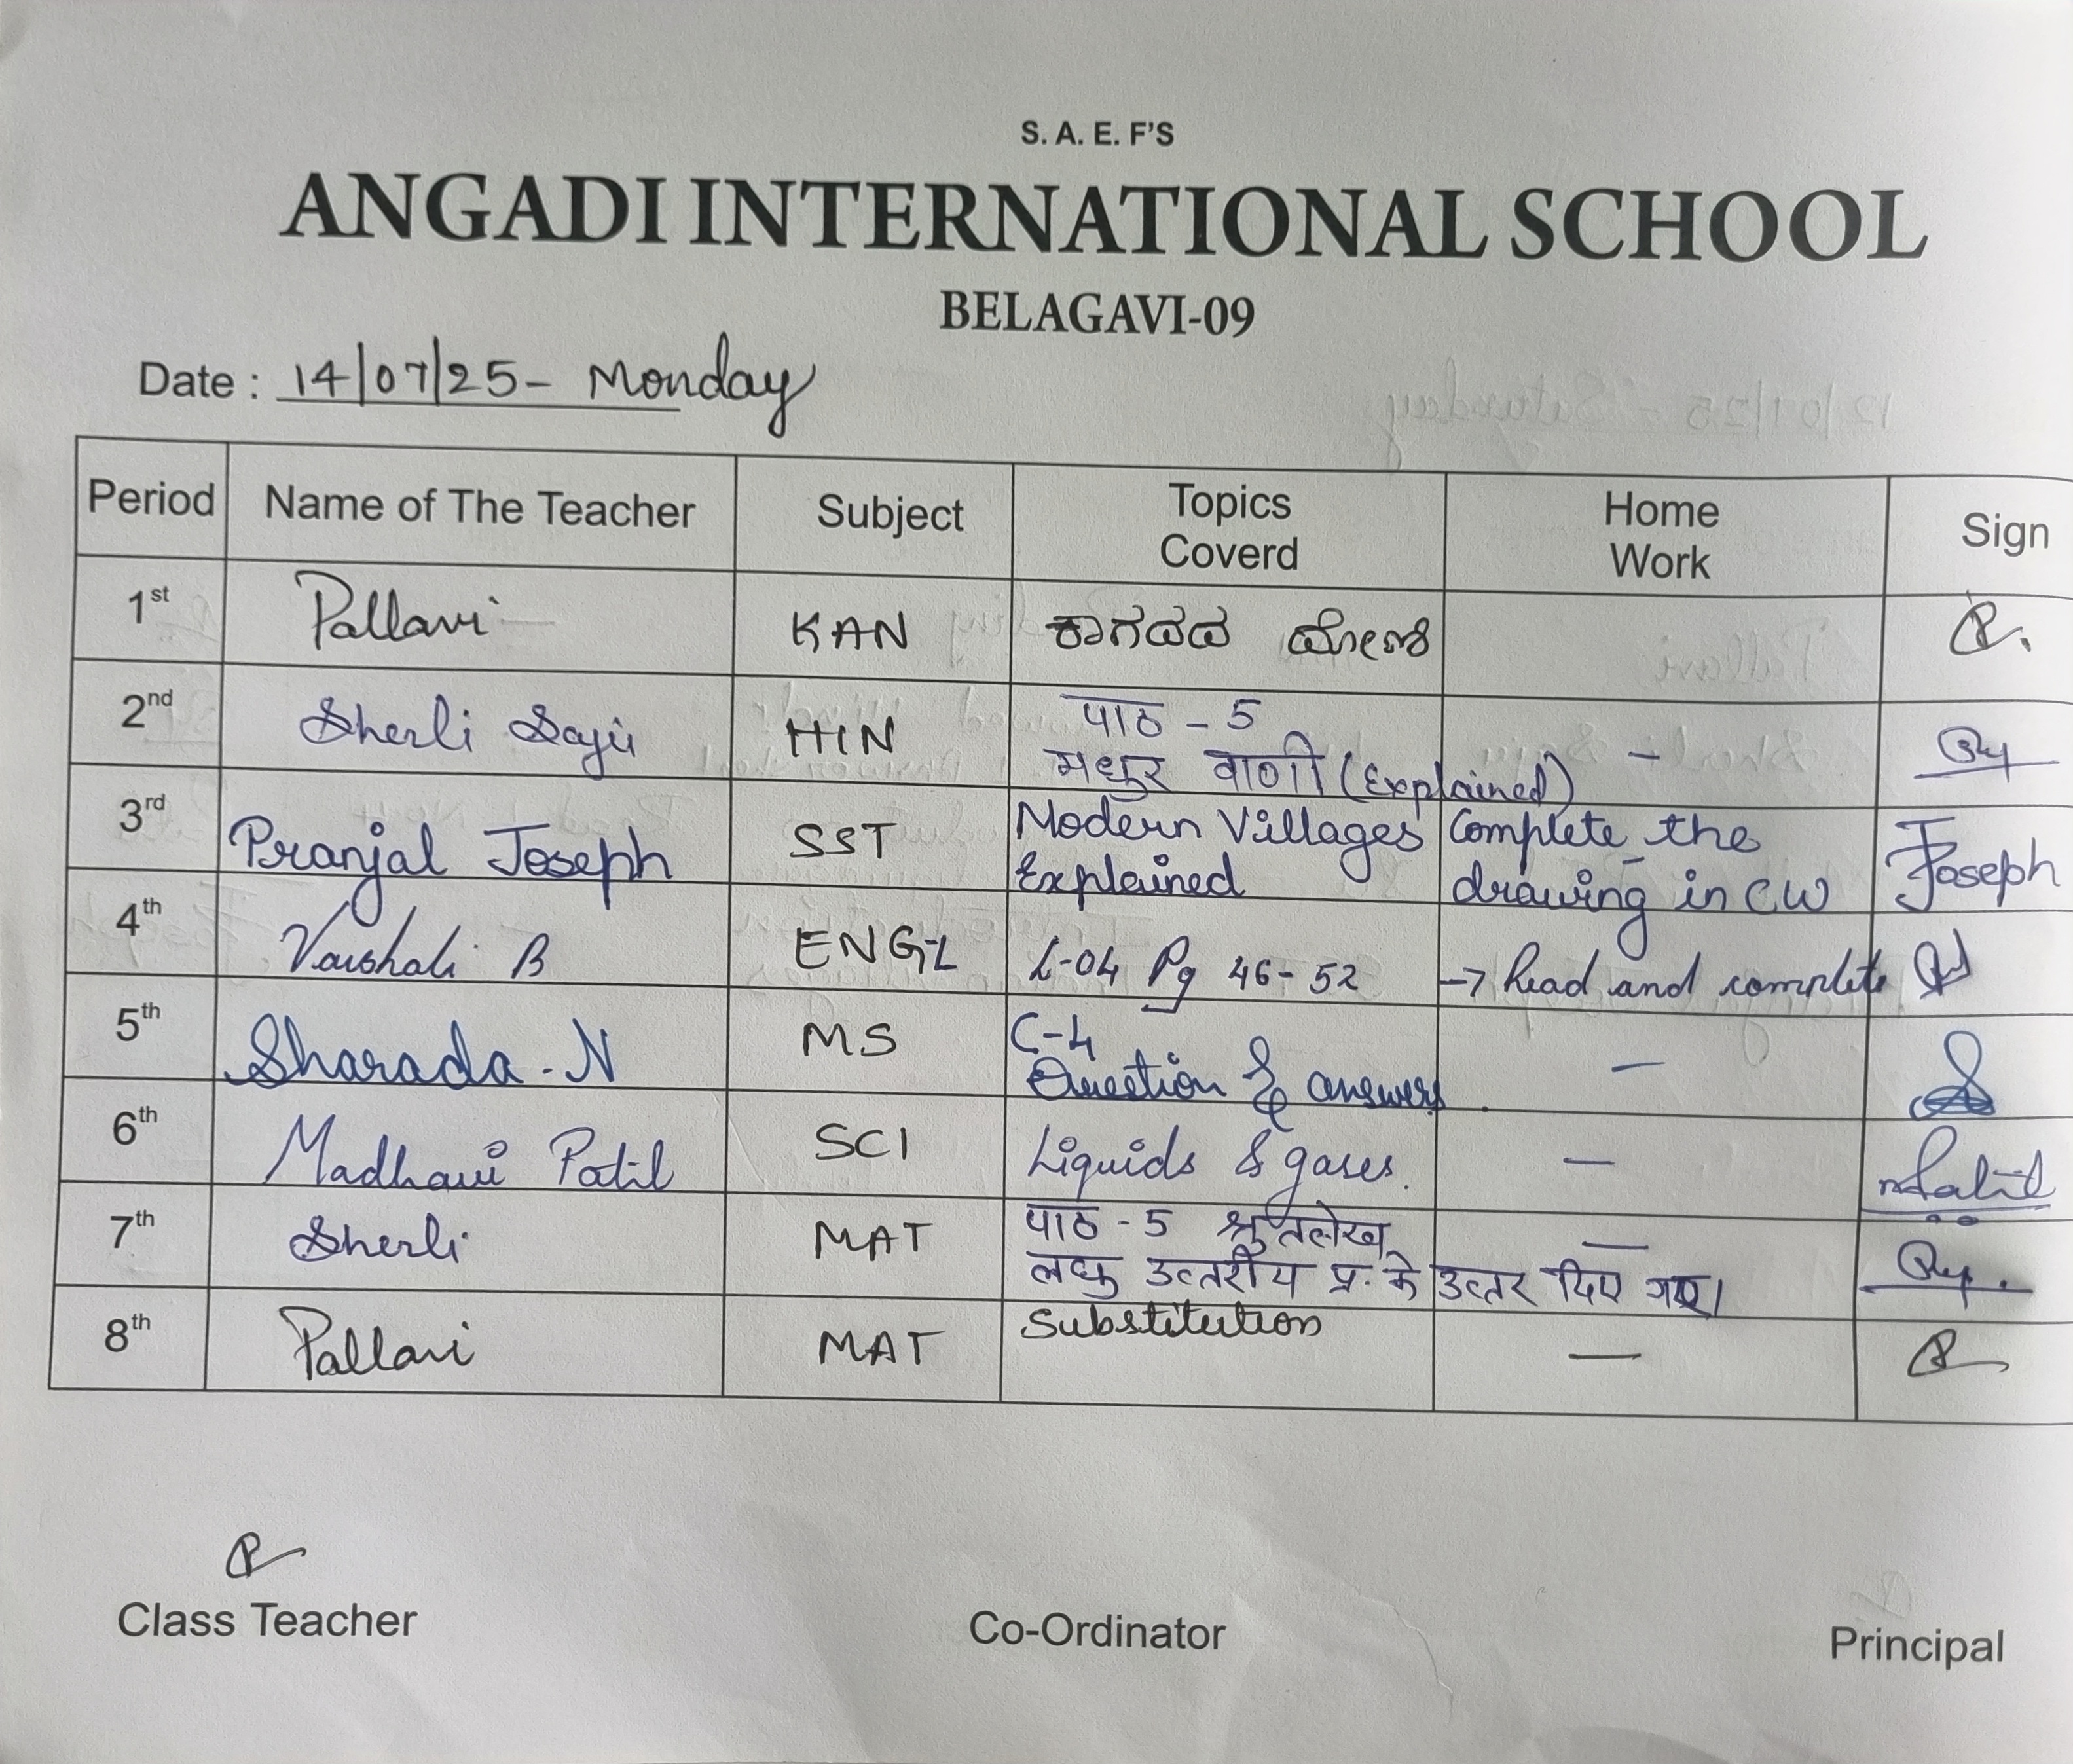 S. A. E. F'S
ANGADI INTERNATIONAL SCHOOL
BELAGAVI-09
Date : 14/07/25 - Monday
Period Name of The Teacher Subject Topics Coverd Home Work Sign
1st Pallavi KAN ಕಾಗದದ ದೋಣಿ
2nd Sherli Saju HIN पाठ - 5
मधुर वाणी (Explained) -
3rd Pranjal Joseph SST Modern Villages Complete the Joseph
Explained drawing in CW
4th Vaishali B ENG-L L-04 Pg 46-52 → Read and complete
5th Sharada . N MS C-4
Question & answers. -
6th Madhavi Patil SCI Liquids & gases. -
7th Sherli MAT पाठ - 5 श्रुतलेख -
लघु उत्तरीय प्र. के उत्तर दिए गए।
8th Pallavi MAT Substitution -
Class Teacher Co-Ordinator Principal